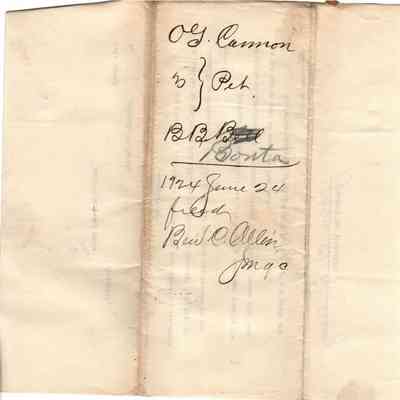 O G. Cannon
vs } Pet.
B B
Bonta
1924 June 24
filed
Ben C. Allin